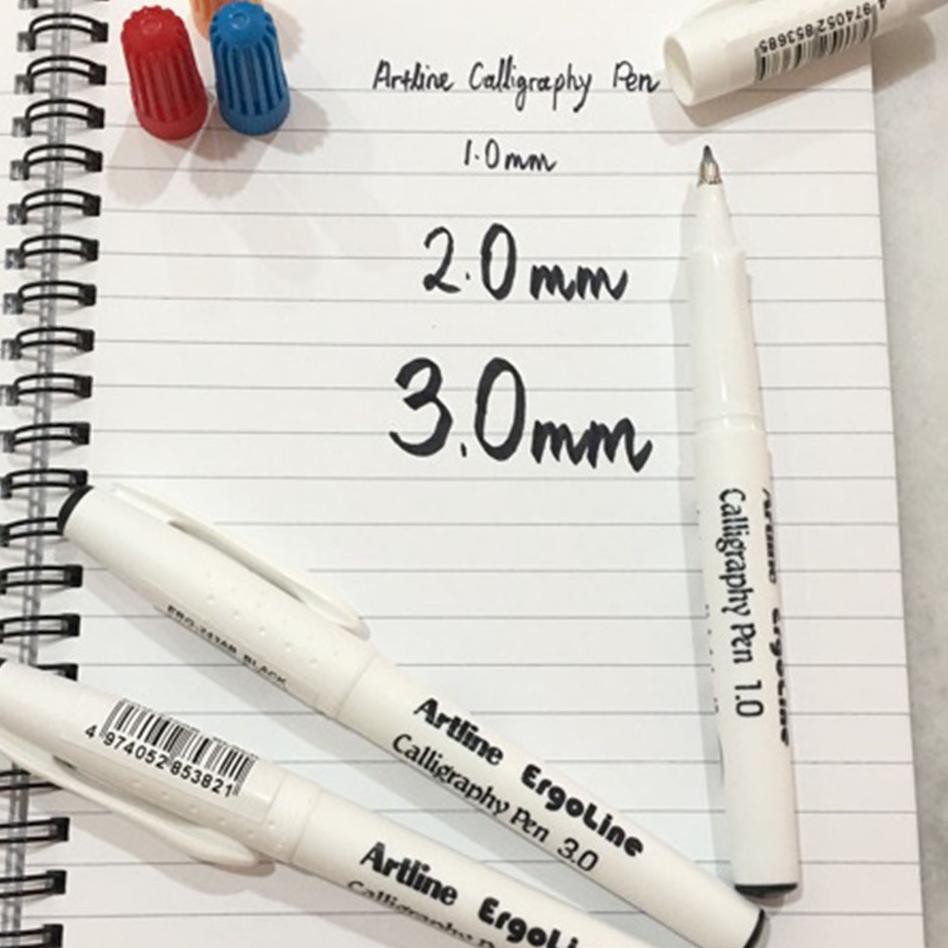 4 974052 853685
Artline Calligraphy Pen
1.0mm
2.0mm
3.0mm
Artline ErgoLine
Calligraphy Pen 1.0
BLACK
Artline ErgoLine
Calligraphy Pen 3.0
4 974052 853821
Artline ErgoLi
Calligraphy